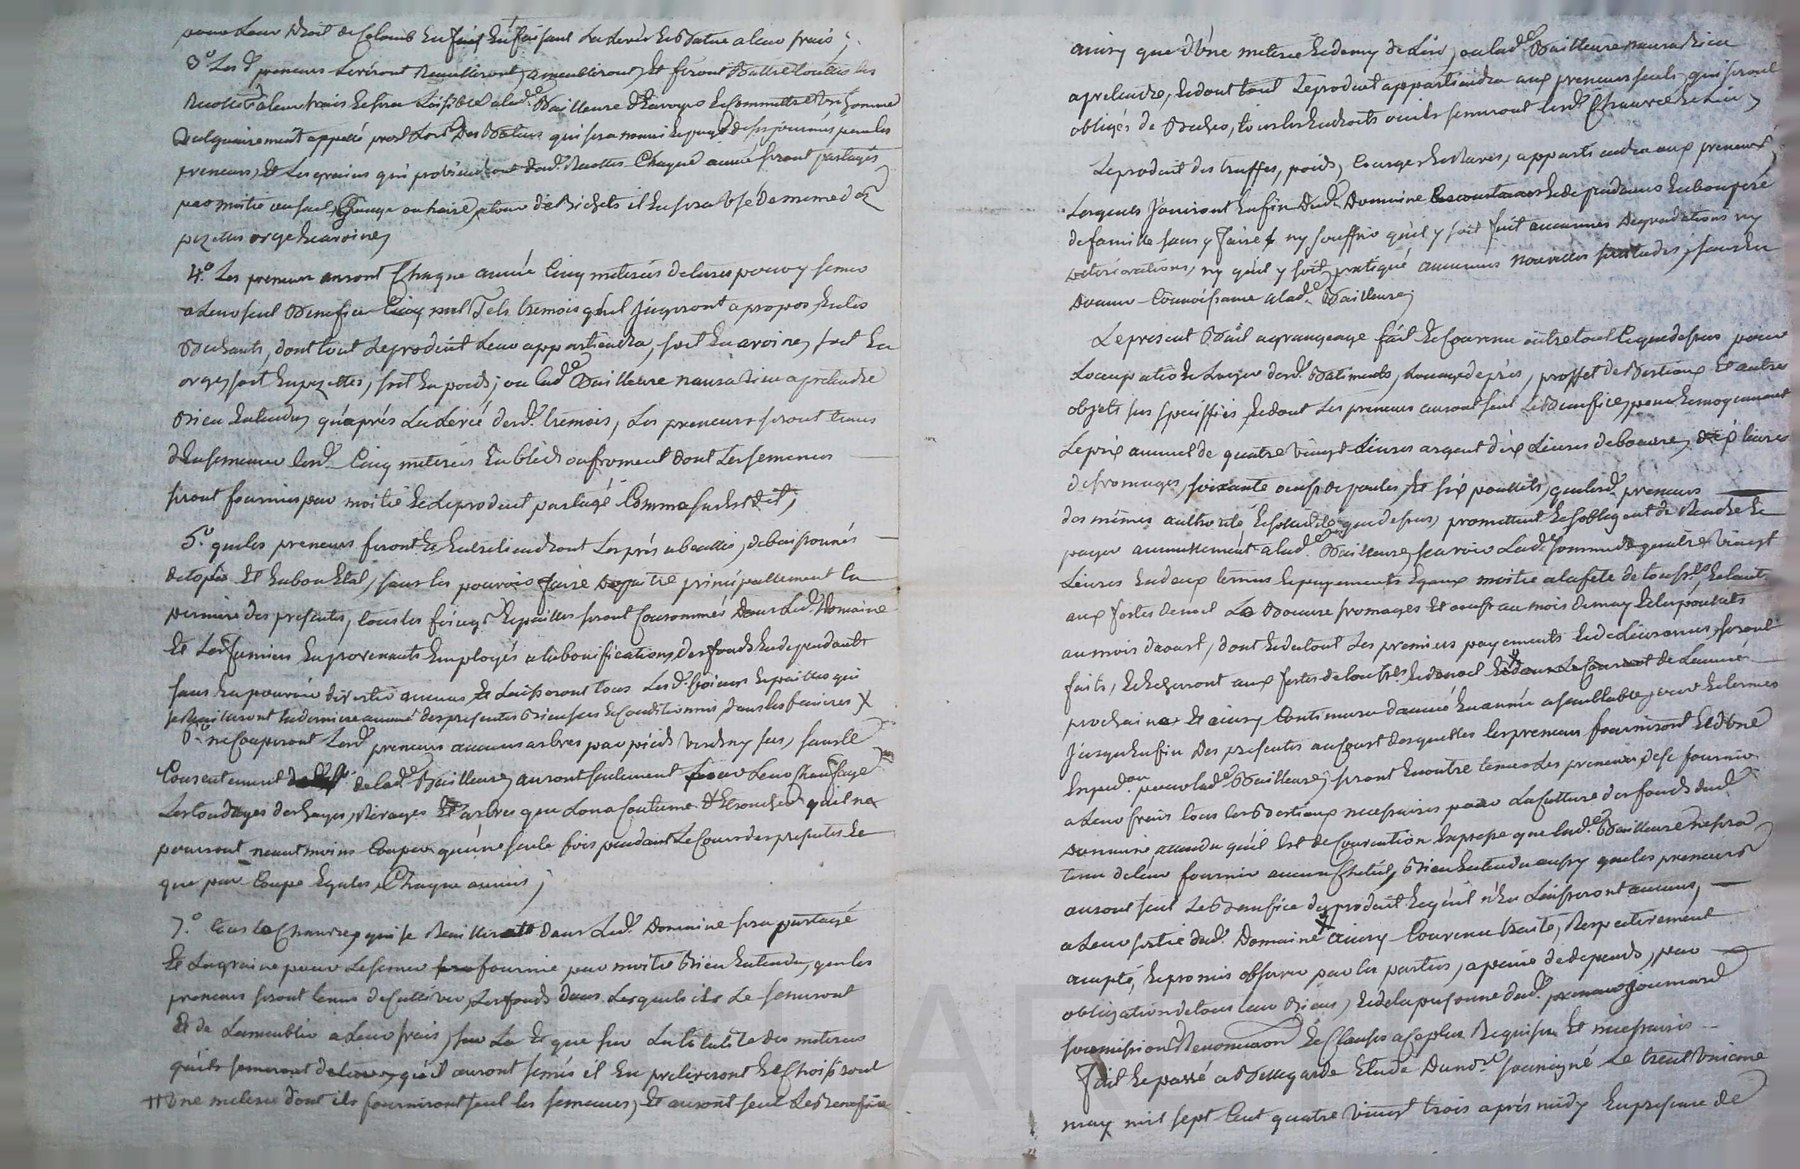 pour leur droit de Colonie En fait En faisant La levée Et Battue a leur frais;
3° Les d. preneurs Leveront Recuilliront, ameubliront, Et feront Battre touttes les
Recoltes a leur frais Et sera Loisible a lad.e Bailleure d'Envoyer Et Commettre un homme
vulguairement appellé Des Bateurs qui sera nouri Et payé de ses journées par les
preneurs, Et Les grains qui proviendront desd. Recoltes Chaque année seront partagés
par moitié au sual, Grange ou haire, a tour de Bichets il En sera usé de meme des
pezettes orge Et avoine,
4° Les preneurs auront Chaque année Cinq meterées de terres pour y semer
a Leur seul Benefice Tels tremois qu'il jugeront a propos Et les
Buchants, dont tout Le produit Leur appartiendra, soit En avoine, soit En
orge, soit En pezettes, soit En poids; ou lad.e Bailleure n'aura rien a pretendre
Bien Entendu, qu'après La levée desd. tremois, Les preneurs seront tenus
d'Ensemencer lesd. Cinq meterées En bled ou froment dont Les semences
seront fournies par moitié Et Le produit partagé Comme sus Est dit,
5° que les preneurs feront Et Entretiendront Les prés abeallés, debuissonnés
detopés Et En bon Etat, sans les pouvoir faire Depaitre principallement la
derniere des presentes, tous les foings Et pailles seront Consommés Dans Led. Domaine
Et Les fumiers En provenants Employés a la bonification des fonds En dependants
sans En pouvoir divertir aucuns Et Laisseront tous Lesd. foins Et pailles qui
se Recuilleront La derniere année des presentes Bien secs Et Conditionnés dans les fenieres X
6° ne Couperont Lesd. preneurs aucuns arbres par pieds verds ny secs, sans le
Consentement de lad.e Bailleure, auront seulement pour Leur Chauffage
Les tondages des hayes, Verages Et arbres que Lon a Coutume d'Etroncher qu'il ne
pourront neantmoins Couper qu'une seule fois pendant Le Cours des presentes Et
que par Coupe Egales Chaque année;
7° tout Le Chanvre, qui se Recuillira dans Led. Domaine sera partagé
Et La graine pour Le semer fournie par moitié Bien Entendu, que les
preneurs seront tenus de Cultiver Les fonds dans Lesquels ils Le semeront
Et de Lameublir a Leur frais, sur La Et que sur La totalité des meterées
qu'ils semeront qu'il auront semés il En preleveront Et Choisiront
Une meterée dont ils fourniront seul les semences, Et auront seul Le Benefice
ainsy que d'Une meterée Et demy de Lin, ou lad.e Bailleure n'aura Rien
a pretendre, Et dont tout Le produit appartiendra aux preneurs seuls, qui seront
obligés de Becher, tous les Endroits ou ils semeront lesd. Chanvre Et Lin,
Le produit des truffes, poids, Courges Et Raves, appartiendra aux preneurs,
Lesquels jouiront Enfin Dud. Domaine Et dependances En bon pere
de famille sans y faire ny souffrir quil y soit fait aucunes Degradations ny
Deteriorations, ny qu'il y soit pratiqué aucunes nouvelles, sans En
Donner Connoissance a lad.e Bailleure;
Le present Bail a grangeage fait Et Convenu outre tout Ce que dessus pour
Loccupation Et Loyer desd. Batiments, proffet de Bestiaux Et autres
objets sus specifiés, Et dont Les preneurs auront seul Le Benefice, pour Et moyennant
Le prix annuel de quatre vingt Livres argent dix Livres de beurre, dix livres
de fromages, soixante oeufs de poules, Et six poullets, que lesd. preneurs
des mêmes authorité Et solidité que dessus, promettent Et sobligent de Rendre Et
payer annuellement a lad.e Bailleure, scavoir Lad. somme de quatre vingt
Livres En deux termes Et payements Egaux moitié a la fete de touss.ts Et lautre
aux fettes de noel Le Beurre fromages Et oeufs au mois de may Et Les poullets
au mois daoust, dont Et du tout Les premiers payements Et delivrances, seront
faits, Et Echeuront aux fettes de toussts Et de noel Et dans Le Courant de Lannée
prochaine Et ainsy Continuer d'année En année a semblable jour Et termes
jusqu'En fin Des presentes au Cours desquelles les preneurs fourniront
pour lad.e Bailleure; seront En outre tenus Les preneurs, de se fournir
a Leur frais tous les Bestiaux necessaires pour La Culture des fonds dud.
Domaine attendu qu'il Est de Convention Expresse que lad.e Bailleure ne sera
tenue de leur fournir aucun Cheptel, Bien Entendu aussy que les preneurs
auront seul Le Benefice du produit Et qu'il n'En Laisseront aucuns,
a Leur sortie dud. Domaine X ainsy Convenu traité, Respectivement
accepté, Et promis observer par les parties, a peine de depends, par
obligation de tous leur Biens, Et de la personne dud. preneur Goumard
soumissions Renonciation Et Clauses a Ce plus Requises Et necessaires
fait Et passé a Bellegarde Etude Du no.re soussigné Le trent'unieme
may mil sept Cent quatre vingt trois après midy En presence de